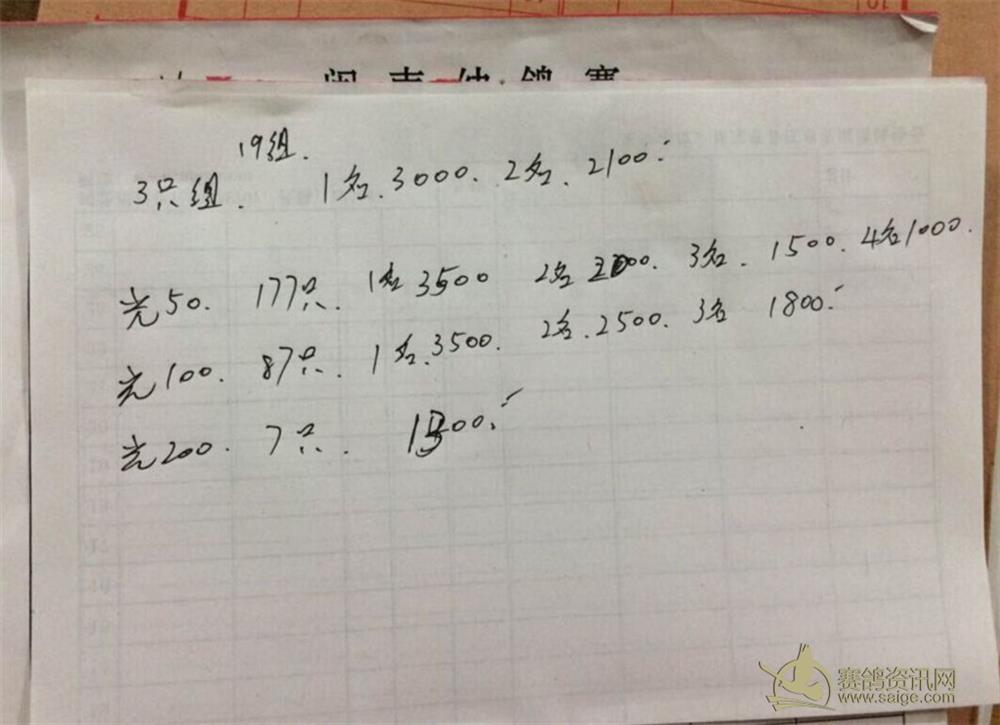 19组.
3只组. 1名.3000. 2名.2100.
光50. 177只. 1名3500 2名 3名. 1500. 4名1000.
光100. 87只. 1名.3500. 2名.2500. 3名 1800.
光200. 7只.
赛鸽资讯网
www.saige.com